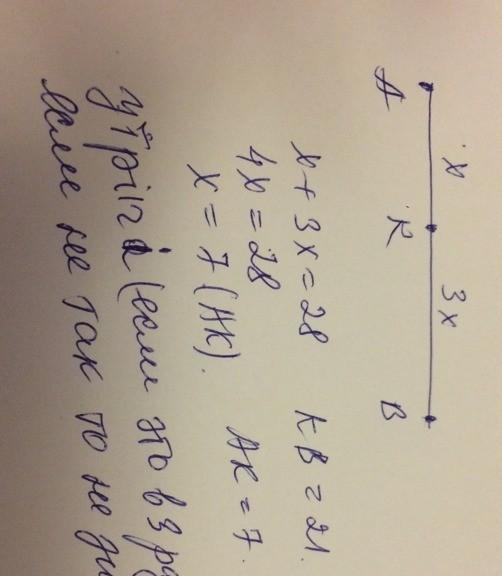 x 3x
A K B
x + 3x = 28 KB = 21.
4x = 28
x = 7 (AK). AK = 7.
(если это в
если не так то не